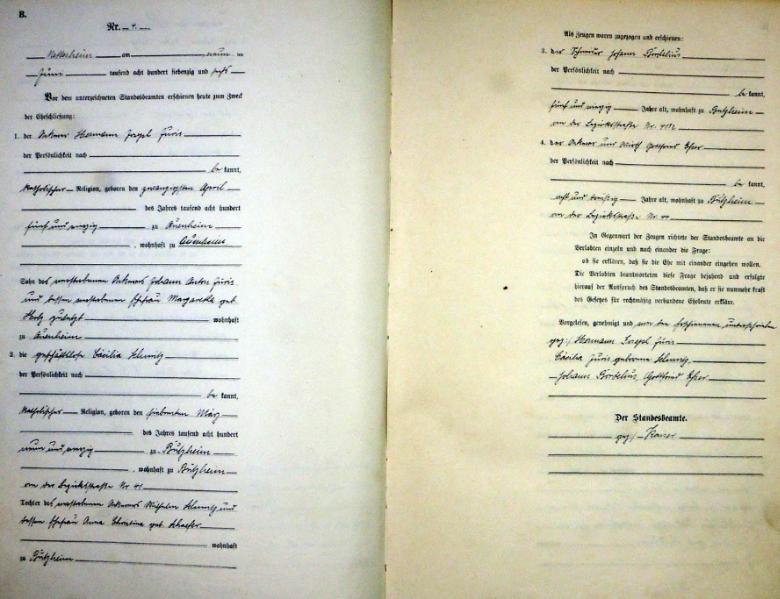 B.
Nr. 4.
am neun ten
Juni tausend acht hundert siebenzig und sechs
Vor dem unterzeichneten Standesbeamten erschienen heute zum Zweck
der Eheschließung:
1. der Ackerer Hermann Joseph Juris
der Persönlichkeit nach
be kannt,
katholischer Religion, geboren den zwanzigsten April
des Jahres tausend acht hundert
fünf und vierzig zu Auenheim
, wohnhaft zu Auenheim
Sohn des verstorbenen Ackerers Johann Anton Juris
und dessen verstorbenen Ehefrau Margaretha geb
zuletzt wohnhaft
zu Auenheim
2. die geschäftslose Cäcilia Schmitz
der Persönlichkeit nach
be kannt,
katholischer Religion, geboren den siebenten März
des Jahres tausend acht hundert
neun und vierzig zu Bützheim
, wohnhaft zu Bützheim
an der Bezirksstraße Nr. 41
Tochter des verstorbenen Ackerers Wilhelm Schmitz und
dessen Ehefrau Anna Christina geb. Schaefer
wohnhaft
zu Bützheim
Als Zeugen waren zugezogen und erschienen:
3. der Johann
der Persönlichkeit nach
be kannt,
fünf und vierzig Jahre alt, wohnhaft zu Bützheim
an der Bezirksstraße Nr.
4. der Ackerer und Wirth Gottfried Esser
der Persönlichkeit nach
be kannt,
acht und dreißig Jahre alt, wohnhaft zu Bützheim
an der Bezirksstraße Nr.
In Gegenwart der Zeugen richtete der Standesbeamte an die
Verlobten einzeln und nach einander die Frage:
ob sie erklären, daß sie die Ehe mit einander eingehen wollen.
Die Verlobten beantworteten diese Frage bejahend und erfolgte
hierauf der Ausspruch des Standesbeamten, daß er sie nunmehr kraft
des Gesetzes für rechtmäßig verbundene Eheleute erkläre.
Vorgelesen, genehmigt und von den Erschienenen unterschrieben
gez: Hermann Joseph Juris
Cäcilia Juris geborene Schmitz
Johann Gottfried Esser
Der Standesbeamte.
gez: